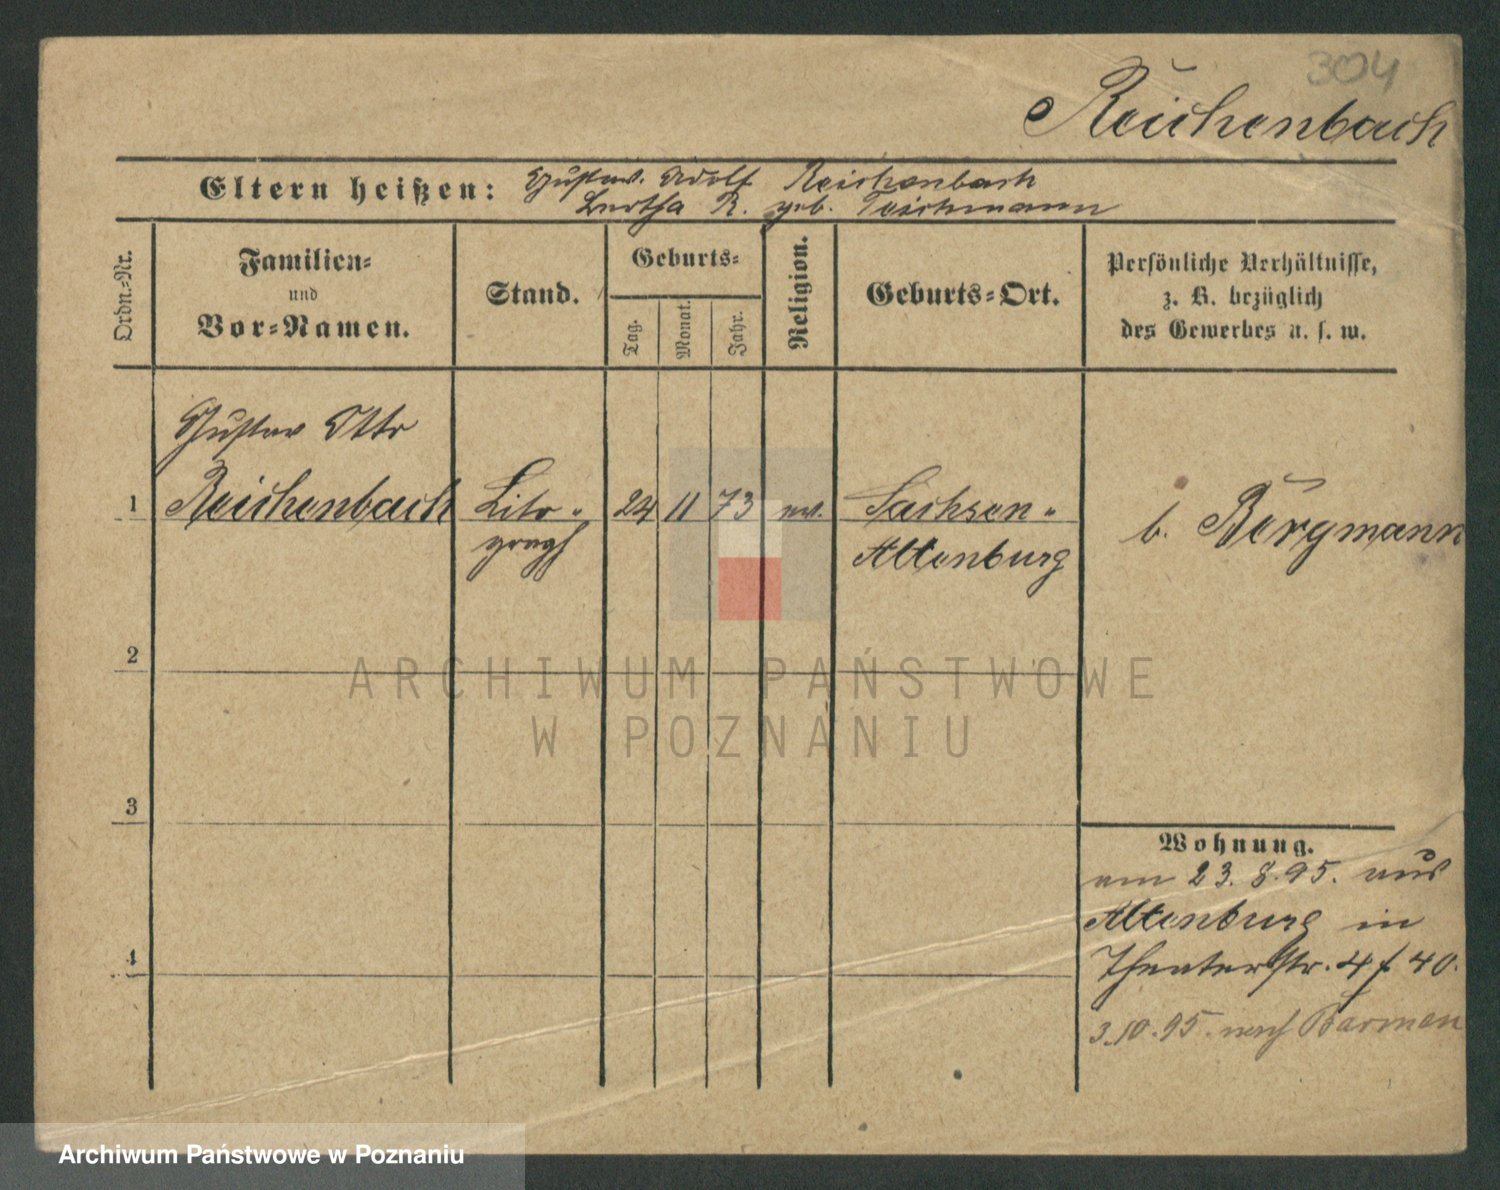 304
Reichenbach
Eltern heißen: Gustav Adolf Reichenbach
Bertha R. geb. Teichmann
Ordn.-Nr.
Familien-
und
Vor-Namen.
Stand.
Geburts-
Tag.
Monat.
Jahr.
Religion.
Geburts-Ort.
Persönliche Verhältnisse,
z. B. bezüglich
des Gewerbes u. s. w.
Gustav Otto
1 Reichenbach Lito- 24 11 73 ev. Sachsen-
graph Altenburg
b. Bergmann
2
3
4
Wohnung.
am 23.8.95. aus
Altenburg in
Theaterstr. 4 b 40.
3.10.95. nach Barmen
ARCHIWUM PAŃSTWOWE
W POZNANIU
Archiwum Państwowe w Poznaniu